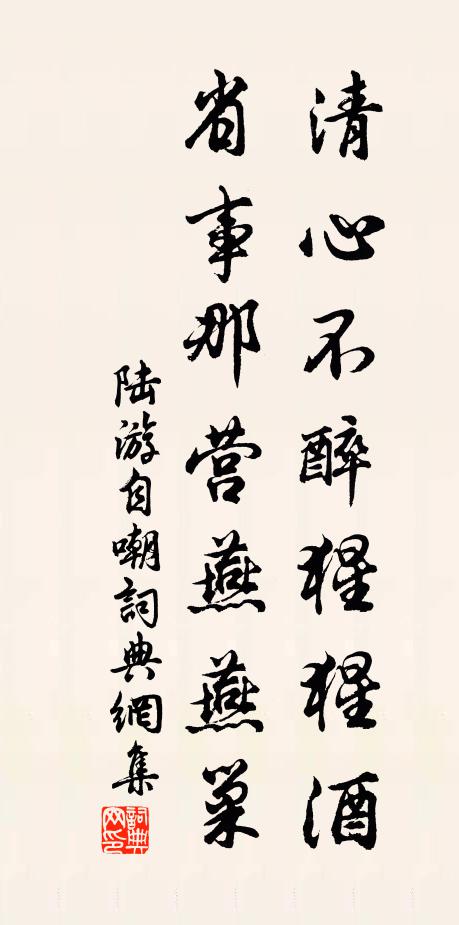 清心不醉猩猩酒
省事那营燕燕巢
陆游自嘲詞典網集
詞典網印